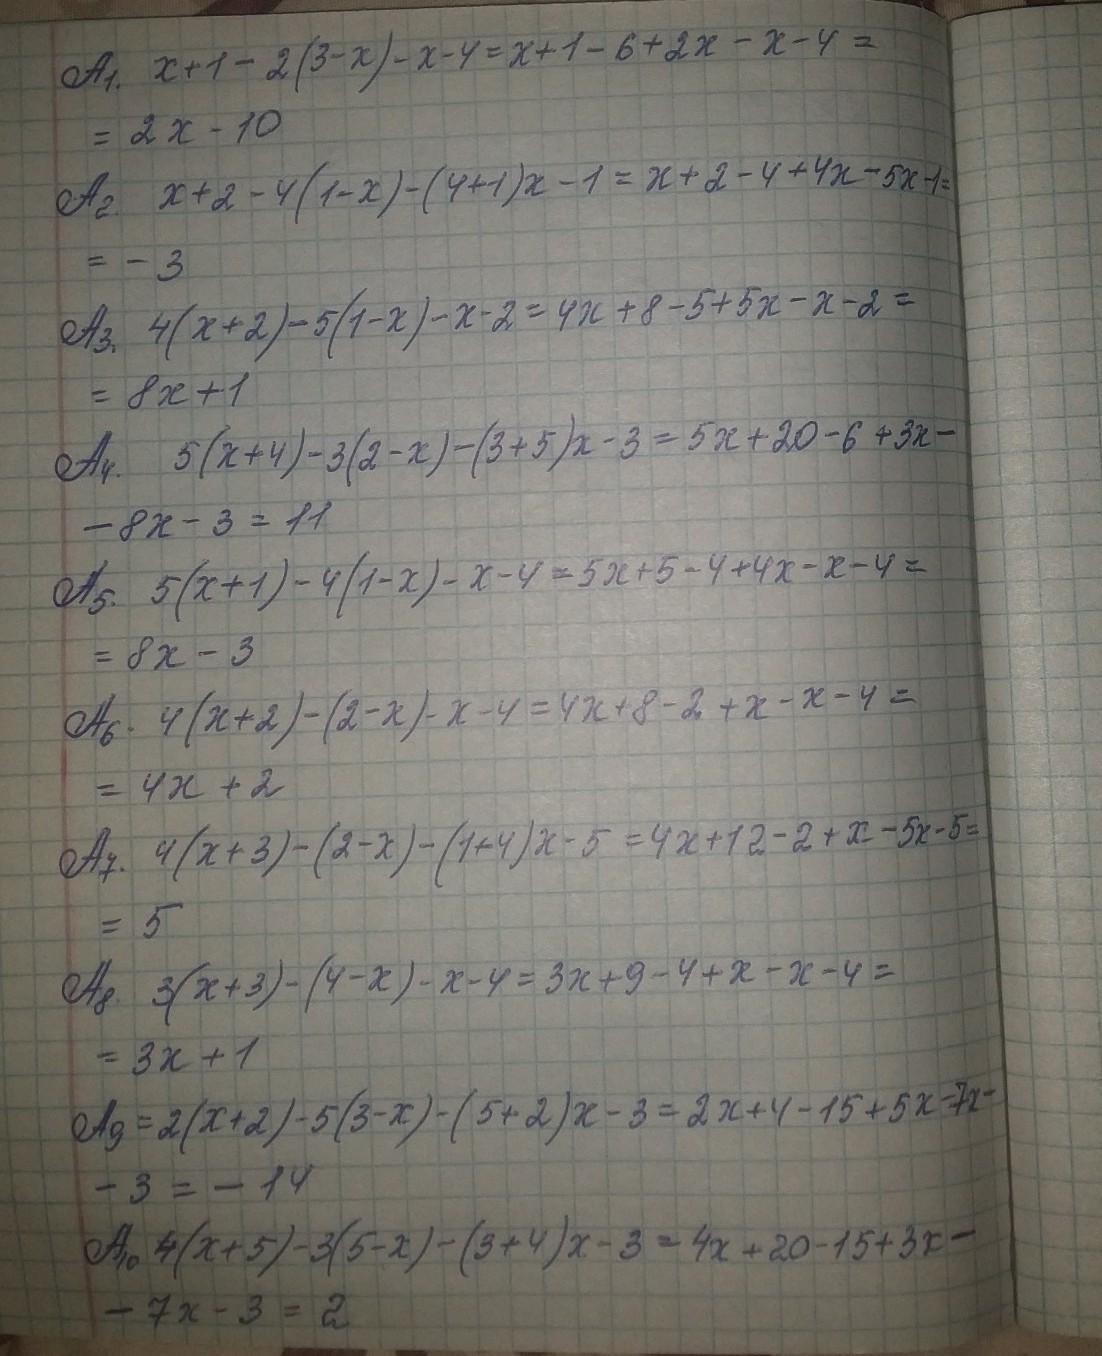 A1. x+1-2(3-x)-x-4=x+1-6+2x-x-4=
=2x-10
A2. x+2-4(1-x)-(4+1)x-1=x+2-4+4x-5x-1=
=-3
A3. 4(x+2)-5(1-x)-x-2=4x+8-5+5x-x-2=
=8x+1
A4. 5(x+4)-3(2-x)-(3+5)x-3=5x+20-6+3x-
-8x-3=11
A5. 5(x+1)-4(1-x)-x-4=5x+5-4+4x-x-4=
=8x-3
A6. 4(x+2)-(2-x)-x-4=4x+8-2+x-x-4=
=4x+2
A7. 4(x+3)-(2-x)-(1+4)x-5=4x+12-2+x-5x-5=
=5
A8. 3(x+3)-(4-x)-x-4=3x+9-4+x-x-4=
=3x+1
A9=2(x+2)-5(3-x)-(5+2)x-3=2x+4-15+5x-7x-
-3=-14
A10 4(x+5)-3(5-x)-(3+4)x-3=4x+20-15+3x-
-7x-3=2